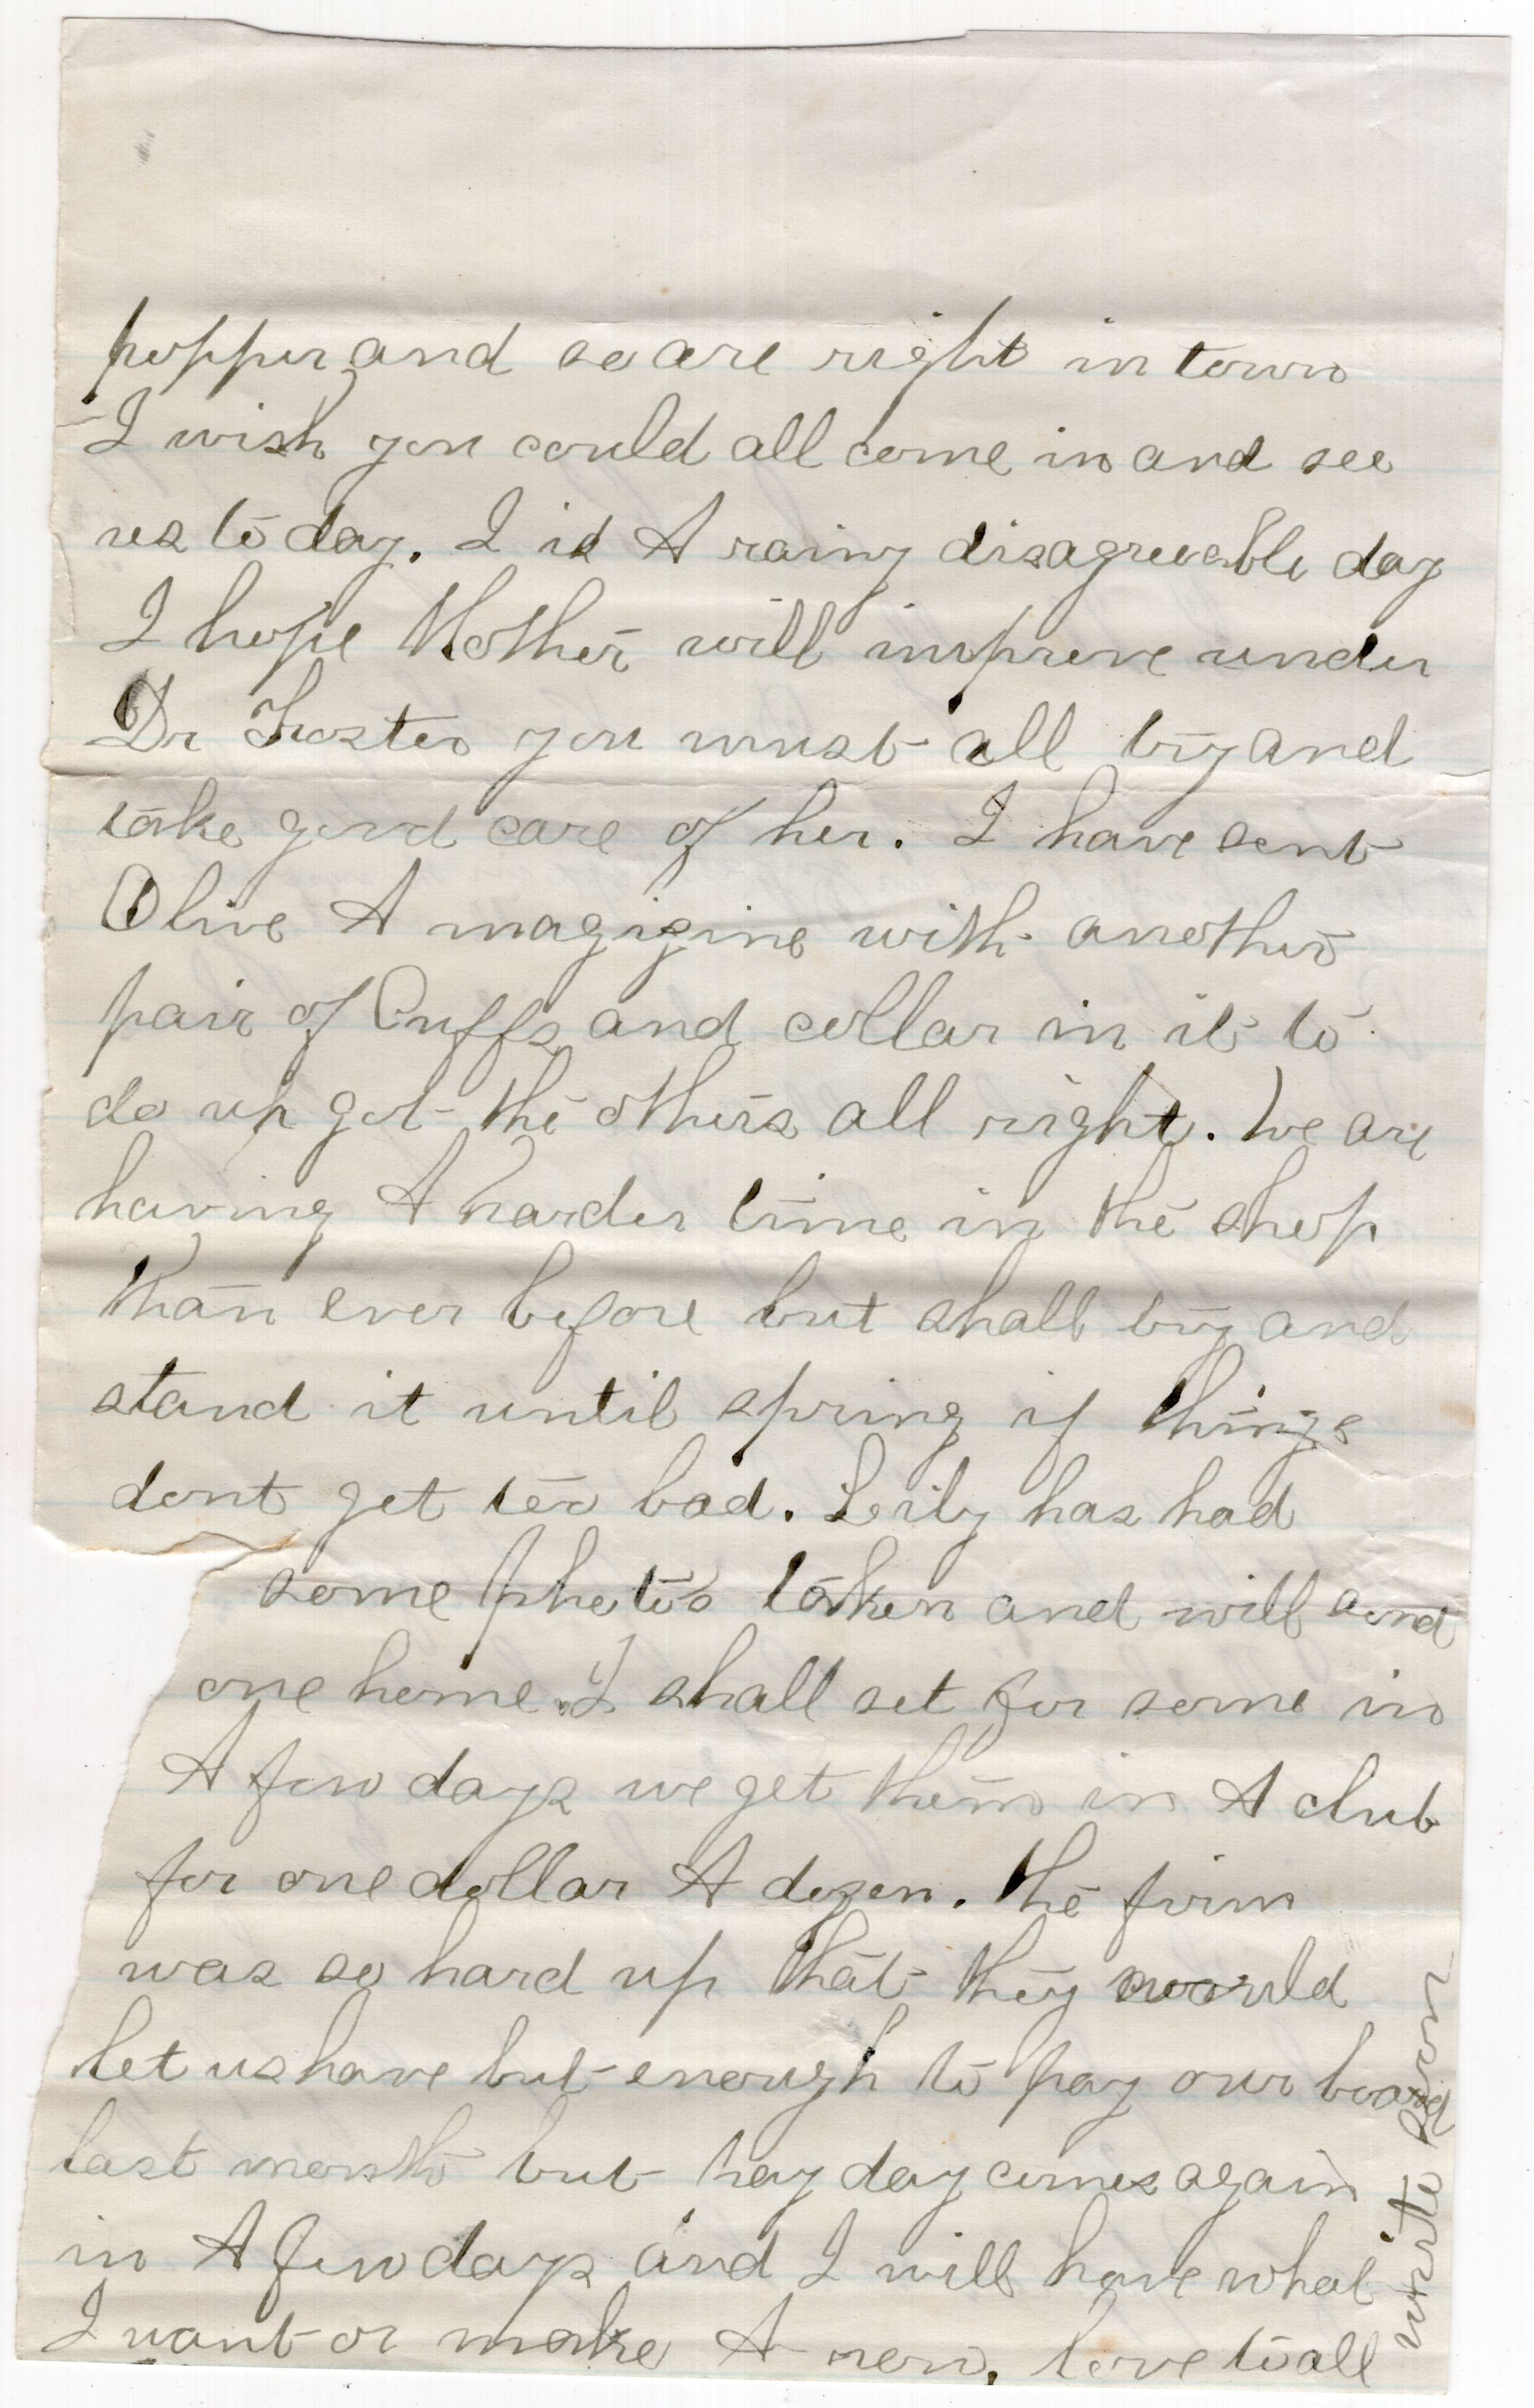 popper and so are right in town
I wish you could all come in and see
us to day. I is A rainy disagreeable day
I hope Mother will improve under
Dr Foster you must all try and
take good care of her. I have sent
Olive A magizine with another
pair of Cuffs and collar in it to
do up got the others all right. We are
having A harder time in the shop
than ever before but shall try and
stand it until spring if things
dont get too bad. has had
some photos taken and will send
one home. I shall set for some in
A few days we get them in A club
for one dollar A dozen. the firm
was so hard up that they would
let us have but enough to pay our board
last month but pay day comes again
in A few days and I will have what
I want or make A row. love to all
write soon